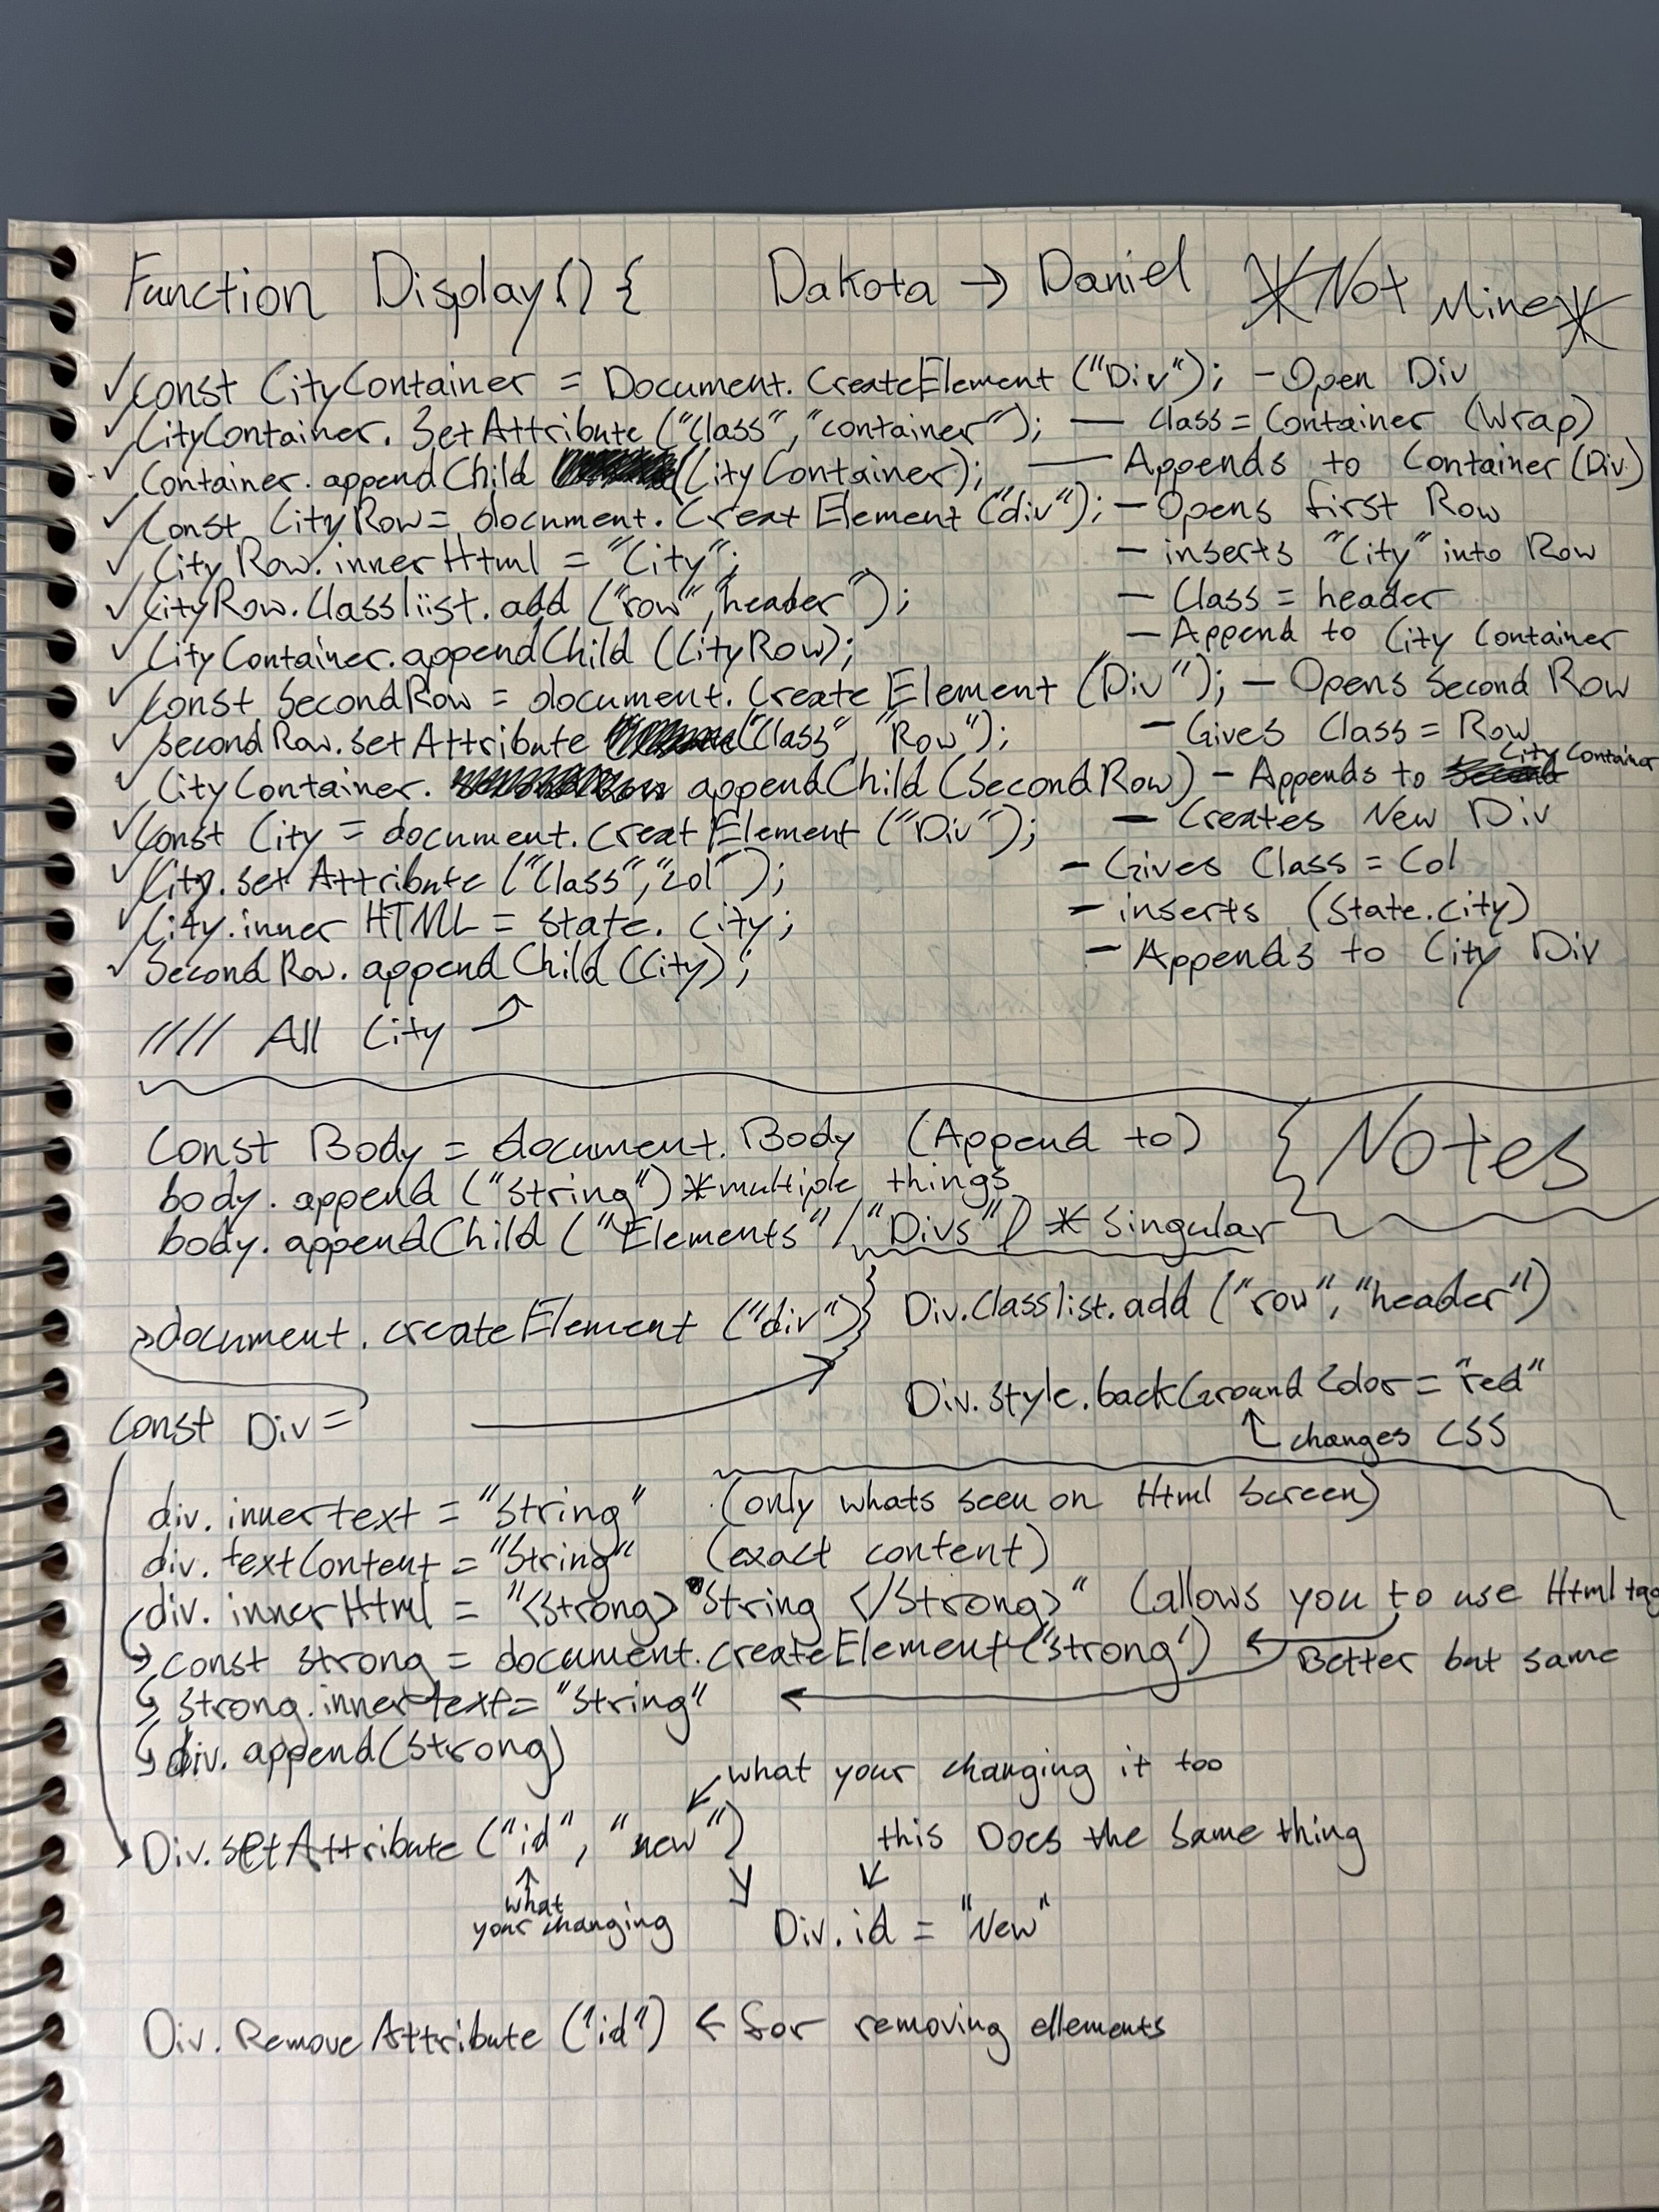 Function Display() { Dakota → Daniel *Not Mine*
✓ Const CityContainer = Document.CreateElement ("Div"); - Open Div
✓ CityContainer. SetAttribute ("Class", "container"); — Class = Container (Wrap)
✓ Container.appendChild (CityContainer); — Appends to Container (Div)
✓ Const CityRow = document. Creat Element ("div"); - Opens first Row
✓ City Row.innerHtml = "City"; - inserts "City" into Row
✓ CityRow.Classliist.add ("row", header"); - Class = header
✓ CityContainer.appendChild (CityRow); - Append to City Container
✓ Const SecondRow = document. Create Element (Div"); - Opens Second Row
✓ SecondRow.setAttribute ("Class", "Row"); - Gives Class = Row
✓ CityContainer. appendChild (SecondRow) - Appends to City Container
✓ Const City = document. Creat Element ("Div"); - Creates New Div
✓ City.set Attribute ("Class","Col"); - Gives Class = Col
✓ City.inner HTML = state. City; - inserts (State.City)
✓ Second Row. appendChild (City); - Appends to City Div
///// All City
Const Body = document. Body (Append to) { Notes
body. append ("String") *multiple things
body. appendChild ("Elements" / "Divs") * Singular
document. createElement ("div") } Div.Classlist.add ("row", "header")
Div.style.backGround Color = "red"
Const Div = ↑ changes CSS
div. innertext = "String" (only whats seen on Html Screen)
div. textContent = "String" (exact content)
div. innerHtml = "<strong> String </Strong>" (allows you to use Html tag
const strong = document.createElement('strong') ← Better but same
strong.innertext = "String" ←
div. append(Strong)
what your changing it too
Div.setAttribute ("id", "new") this Does the Same thing
↑ what
your changing Div.id = "New"
Div. Remove Attribute ("id") ← for removing ellements